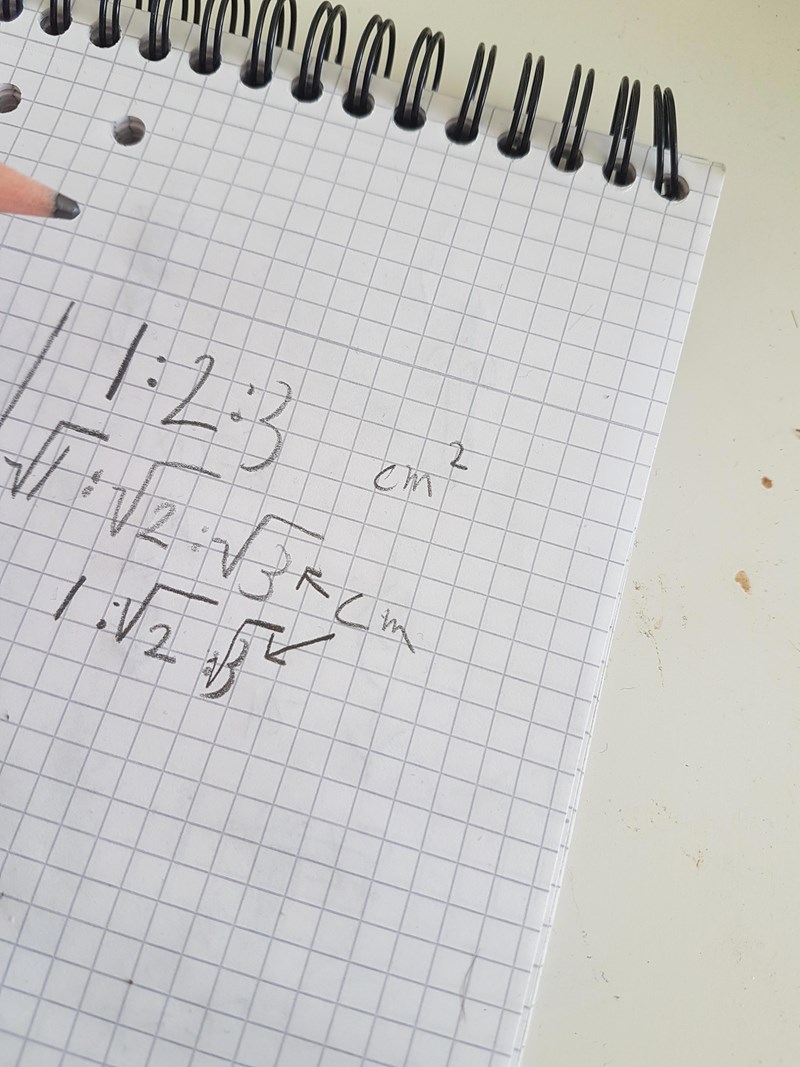 1:2:3
cm²
√1:√2:√3
cm
1:√2:√3